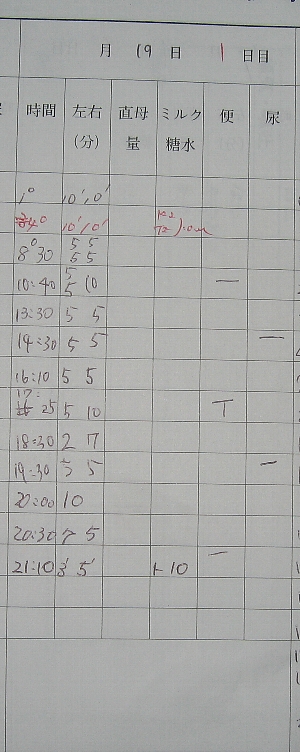 月 19 日 1 日目
時間 左右(分) 直母量 ミルク糖水 便 尿
1⁰ 10' 10'
4⁰ 10' 10'
8⁰30 5 5 5 5
10:40 5 5 10 一
13:30 5 5
14:30 5 5 一
16:10 5 5
17:25 5 10 T
18:30 2 7
19:30 5 5 一
20:00 10
20:30 7 5
21:10 8' 5' ト10 一